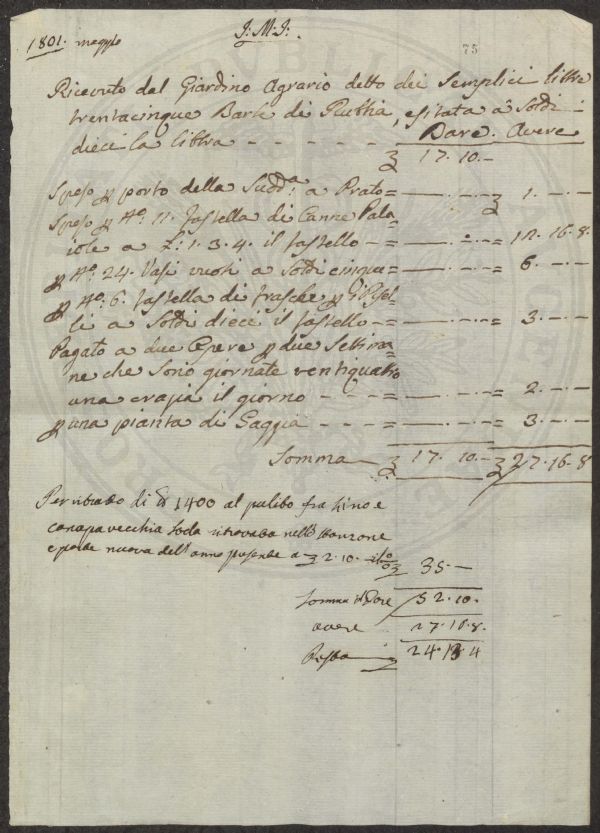 J: M: J:
1801. maggio
75
Ricevuto dal Giardino Agrario detto dei Semplici libbre
trentacinque Barb: di Rubbia, esitata a Soldi
dieci la libbra - - - - - - Dare. Avere
17. 10. -
Speso p porto della Sudd:a a Prato = 1. - . -
Speso p No: 11. fastella di Canne Pala
iole a L: 1. 3. 4. il fastello - = 12. 16. 8.
p No: 24. Vasi vuoti a Soldi cinque = 6. -
p No: 6. fastella di frasche p Gi Pisel
li a Soldi dieci il fastello - = 3. - . -
Pagato a due Opere p due Settima
ne che sono giornate ventiquatro
una crazia il giorno - - - = 2. - . -
p una pianta di Gaggia - - - = 3. - . -
Somma 17. 10. - 27. 16. 8
Per di 1400 al pulito fra Lino e
canapa vecchia soda ritrovata nello stanzone
e parte nuova dell' anno presente a 2. 10. - il
35. -
Somma il Dare 52. 10.
avere 27. 16. 8.
Resta 24. 13. 4